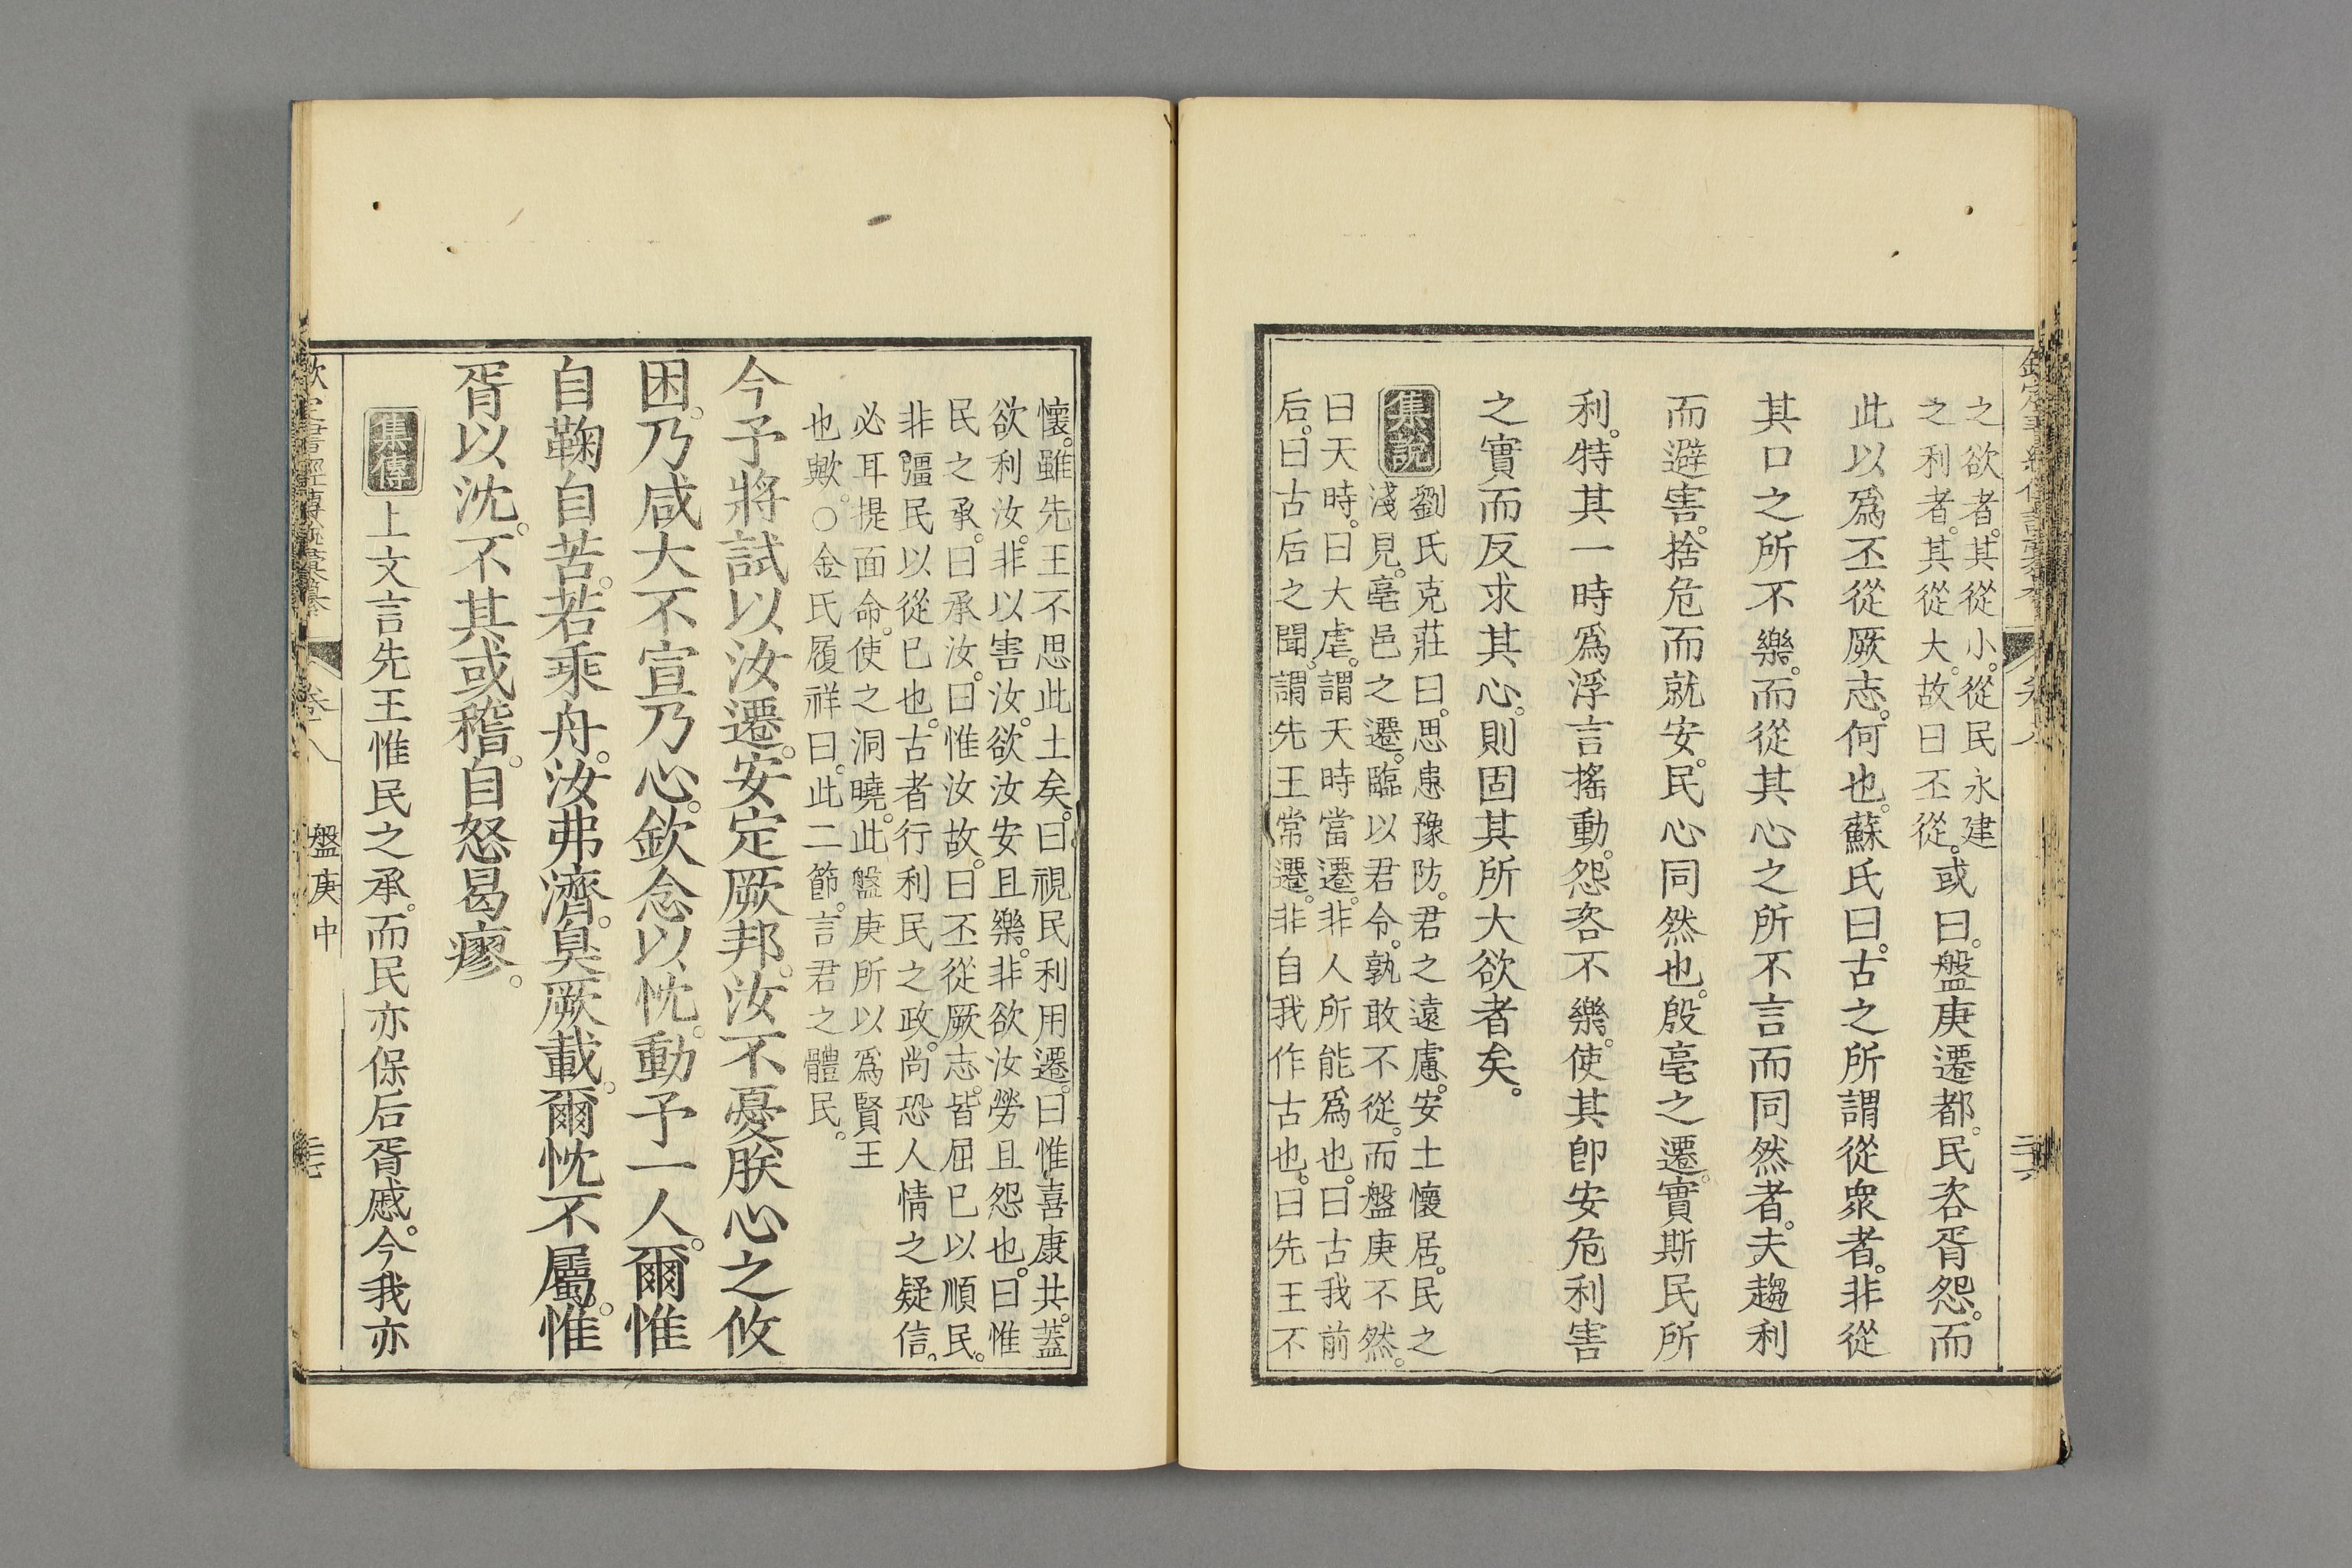 之欲者。其從小。從民永建
之利者。其從大。故曰丕從。或曰。盤庚遷都。民咨胥怨。而
此以爲丕從厥志。何也。蘇氏曰。古之所謂從衆者。非從
其口之所不樂。而從其心之所不言而同然者。夫趨利
而避害。捨危而就安。民心同然也。殷亳之遷。實斯民所
利。特其一時爲浮言搖動。怨咨不樂。使其卽安危利害
之實而反求其心。則固其所大欲者矣。
集說
劉氏克莊曰。思患豫防。君之遠慮。安土懷居。民之
淺見。亳邑之遷。臨以君令。孰敢不從。而盤庚不然。
曰天時。曰大虐。謂天時當遷。非人所能爲也。曰古我前
后。曰古后之聞。謂先王常遷。非自我作古也。曰先王不
懷。雖先王不思此土矣。曰視民利用遷。曰惟喜康共。蓋
欲利汝。非以害汝。欲汝安且樂。非欲汝勞且怨也。曰惟
民之承。曰承汝。曰惟汝故。曰丕從厥志。皆屈已以順民。
非彊民以從已也。古者行利民之政。尚恐人情之疑信。
必耳提面命。使之洞曉。此盤庚所以爲賢王
也歟。○金氏履祥曰。此二節。言君之體民。
今予將試以汝遷。安定厥邦。汝不憂朕心之攸
困。乃咸大不宣乃心。欽念以忱。動予一人。爾惟
自鞠自苦。若乘舟。汝弗濟。臭厥載。爾忱不屬。惟
胥以沈。不其或稽。自怒曷瘳。
集傳
上文言先王惟民之承。而民亦保后胥慼。今我亦
卷八
盤庚中